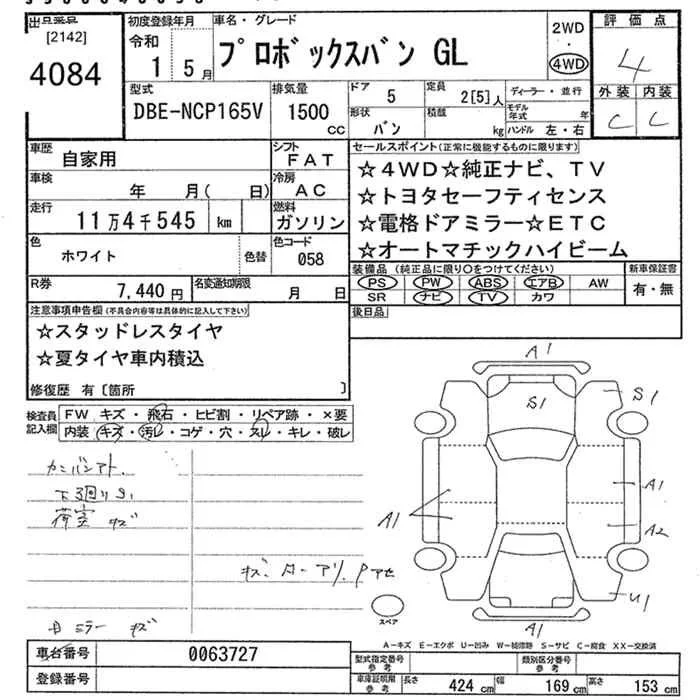 出品番号 [2142] 4084
初度登録年月 令和 1 5月
車名・グレード プロボックスバン GL
2WD・4WD
評価点 4
外装 内装
C C
型式 DBE-NCP165V
排気量 1500 cc
ドア 5 定員 2[5]人
形状 バン 積載 kg
ディーラー・並行
モデル年式 年
ハンドル 左・右
車歴 自家用
シフト FAT
車検 年 月( 日)
冷房 AC
走行 11万4千545 km
燃料 ガソリン
色 ホワイト 色替
色コード 058
R券 7,440円
名変通知期限 月 日
セールスポイント(正常に機能するものに限ります)
☆4WD☆純正ナビ、TV
☆トヨタセーフティセンス
☆電格ドアミラー☆ETC
☆オートマチックハイビーム
装備品 (純正品に限り○をつけてください) 新車保証書
PS PW ABS エアB AW 有・無
SR ナビ TV カワ
後日品
注意事項申告欄(不具合内容等は具体的に記入して下さい)
☆スタッドレスタイヤ
☆夏タイヤ車内積込
修復歴 有〔箇所 〕
検査員記入欄
FW キズ・飛石・ヒビ割・リペア跡・×要
内装 キズ・汚レ・コゲ・穴・スレ・キレ・破レ
カンバンアト
下廻りS1
荷室 キズ
ミラー キズ
A1
S1
S1
A1
A1
A2
U1
A1
スペア
A-キズ E-エクボ U-凹み W-補修跡 S-サビ C-腐食 XX-交換済
車台番号 0063727
登録番号
型式指定番号 参考 類別区分番号 参考
車庫証明用 参考 長さ 424 cm 幅 169 cm 高さ 153 cm